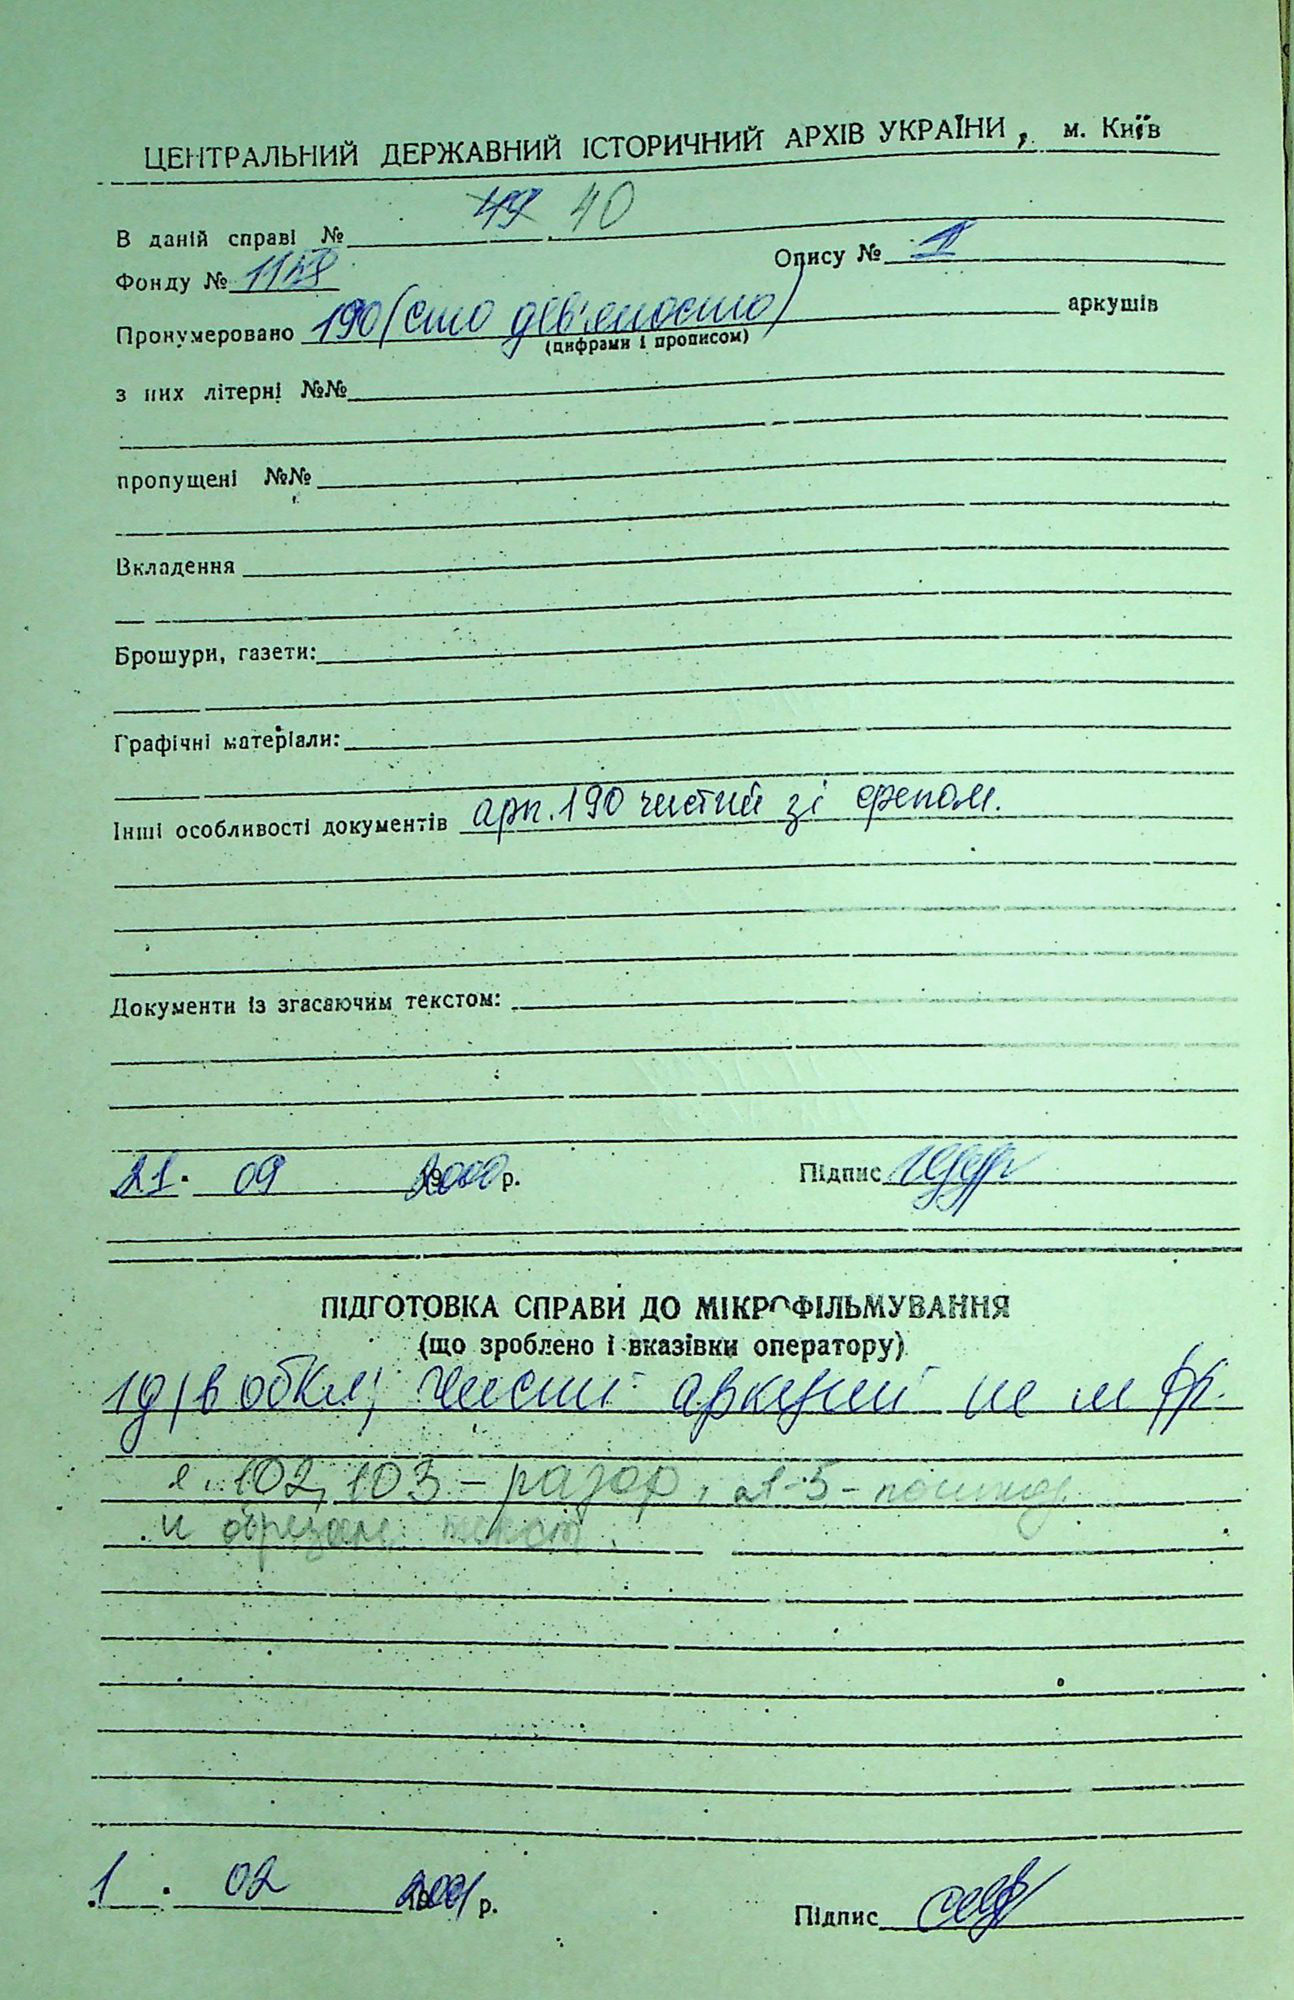 ЦЕНТРАЛЬНИЙ ДЕРЖАВНИЙ ІСТОРИЧНИЙ АРХІВ УКРАЇНИ, м. Київ
В даній справі № 49 40
Фонду № 1158 Опису № 1
Пронумеровано 190 (сто дев'яносто) аркушів
(цифрами і прописом)
з них літерні №№
пропущені №№
Вкладення
Брошури, газети:
Графічні матеріали:
Інші особливості документів арк. 190 чистий зі
Документи із згасаючим текстом:
21. 09 2000 р. Підпис
ПІДГОТОВКА СПРАВИ ДО МІКРОФІЛЬМУВАННЯ
(що зроблено і вказівки оператору)
в обкл; чисті аркуші не м
л. 102, 103 - разор, 1-5 -
и обрезан текст
1. 02 2001 р. Підпис